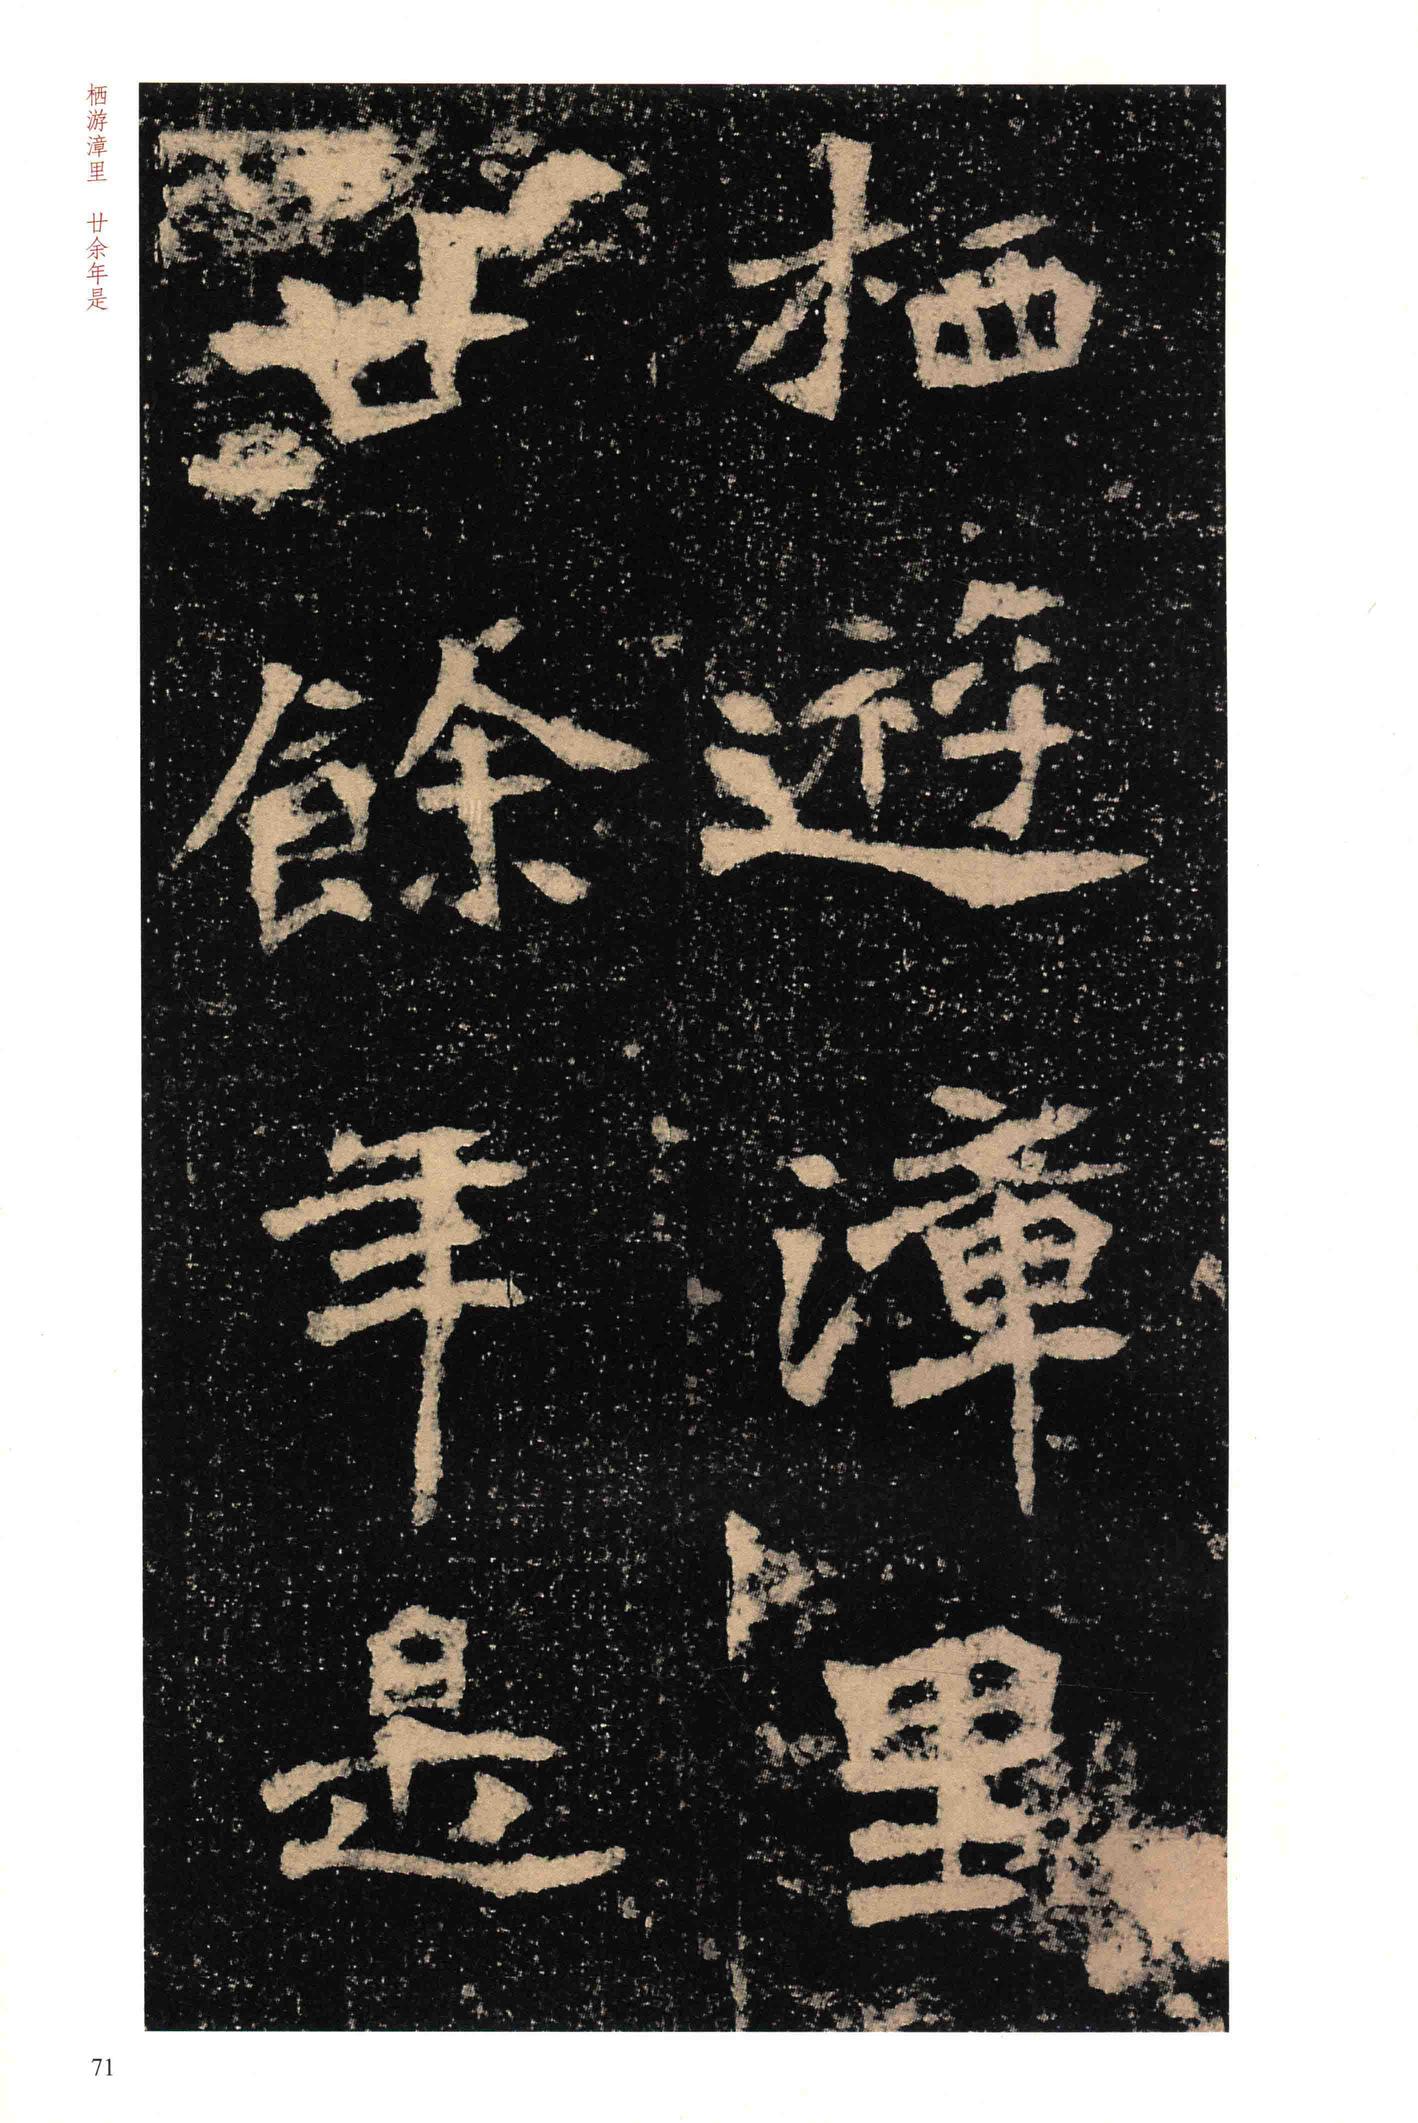 栖遊漳里
廿餘年是
栖游漳里 廿余年是
71